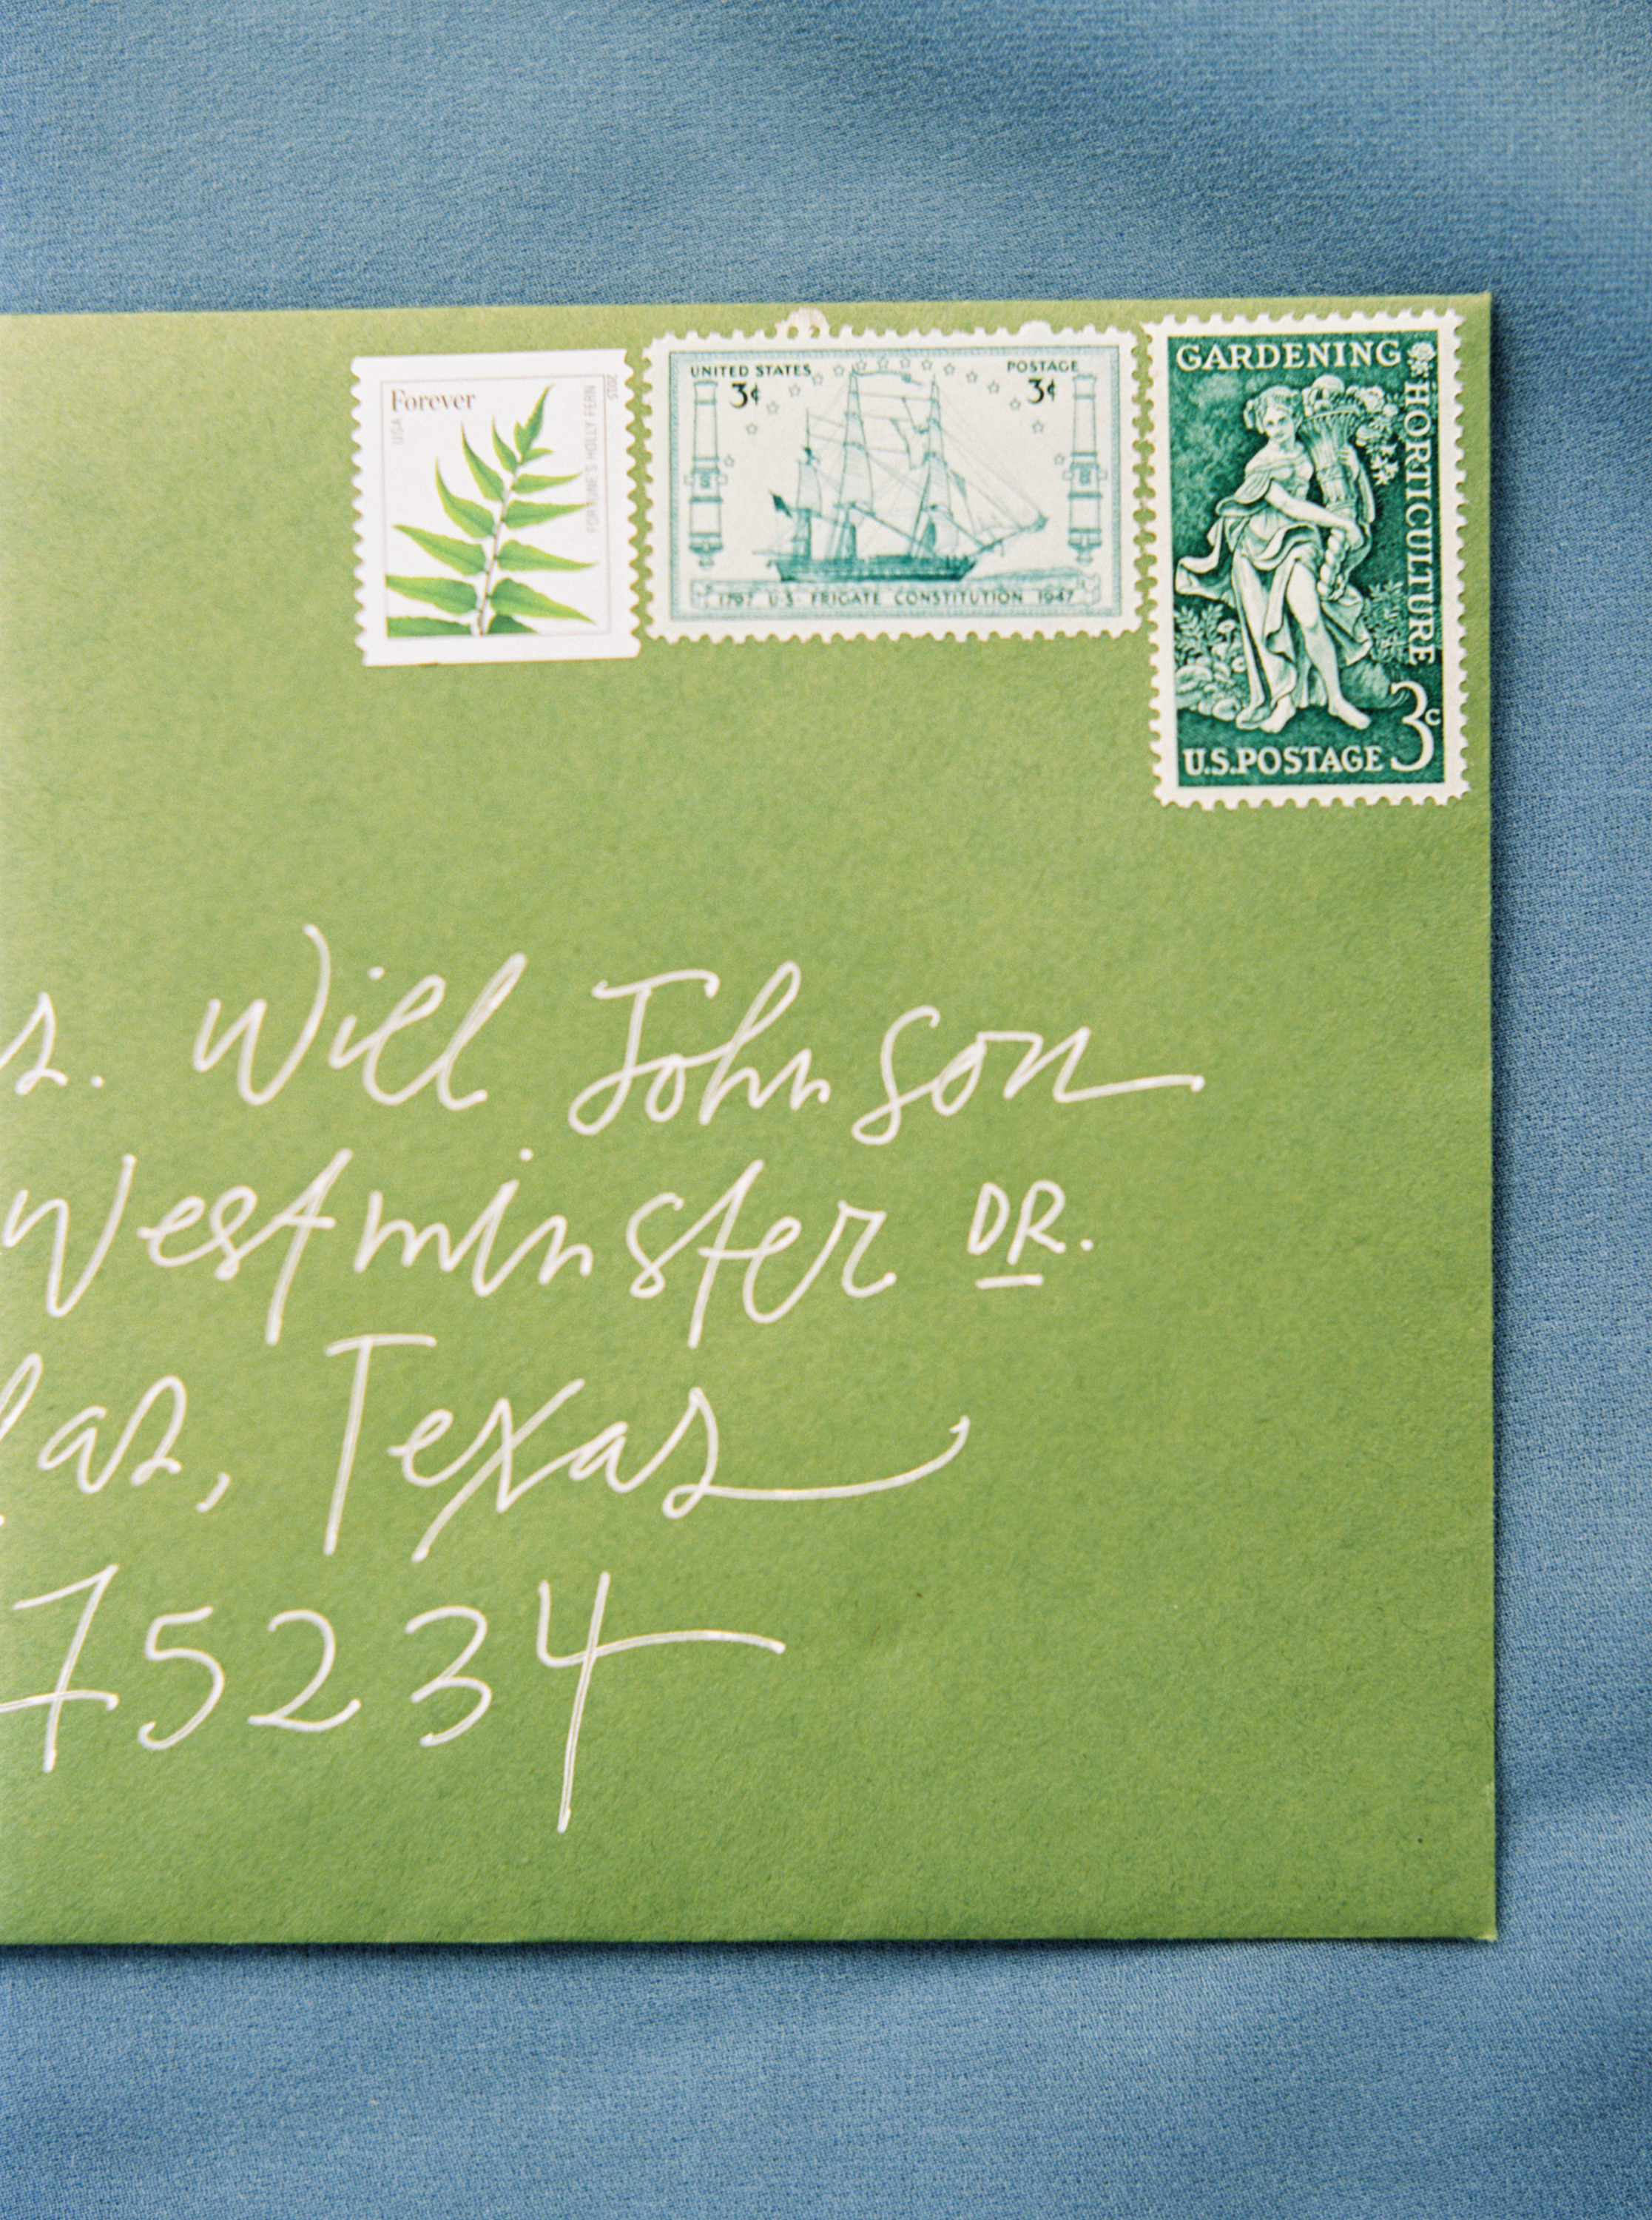 Forever
USA
FORTUNE'S HOLLY FERN
2015
UNITED STATES POSTAGE
3¢ 3¢
1797 U.S. FRIGATE CONSTITUTION 1947
GARDENING
HORTICULTURE
3c
U.S.POSTAGE
s. Will Johnson
Westminster DR.
las, Texas
75234